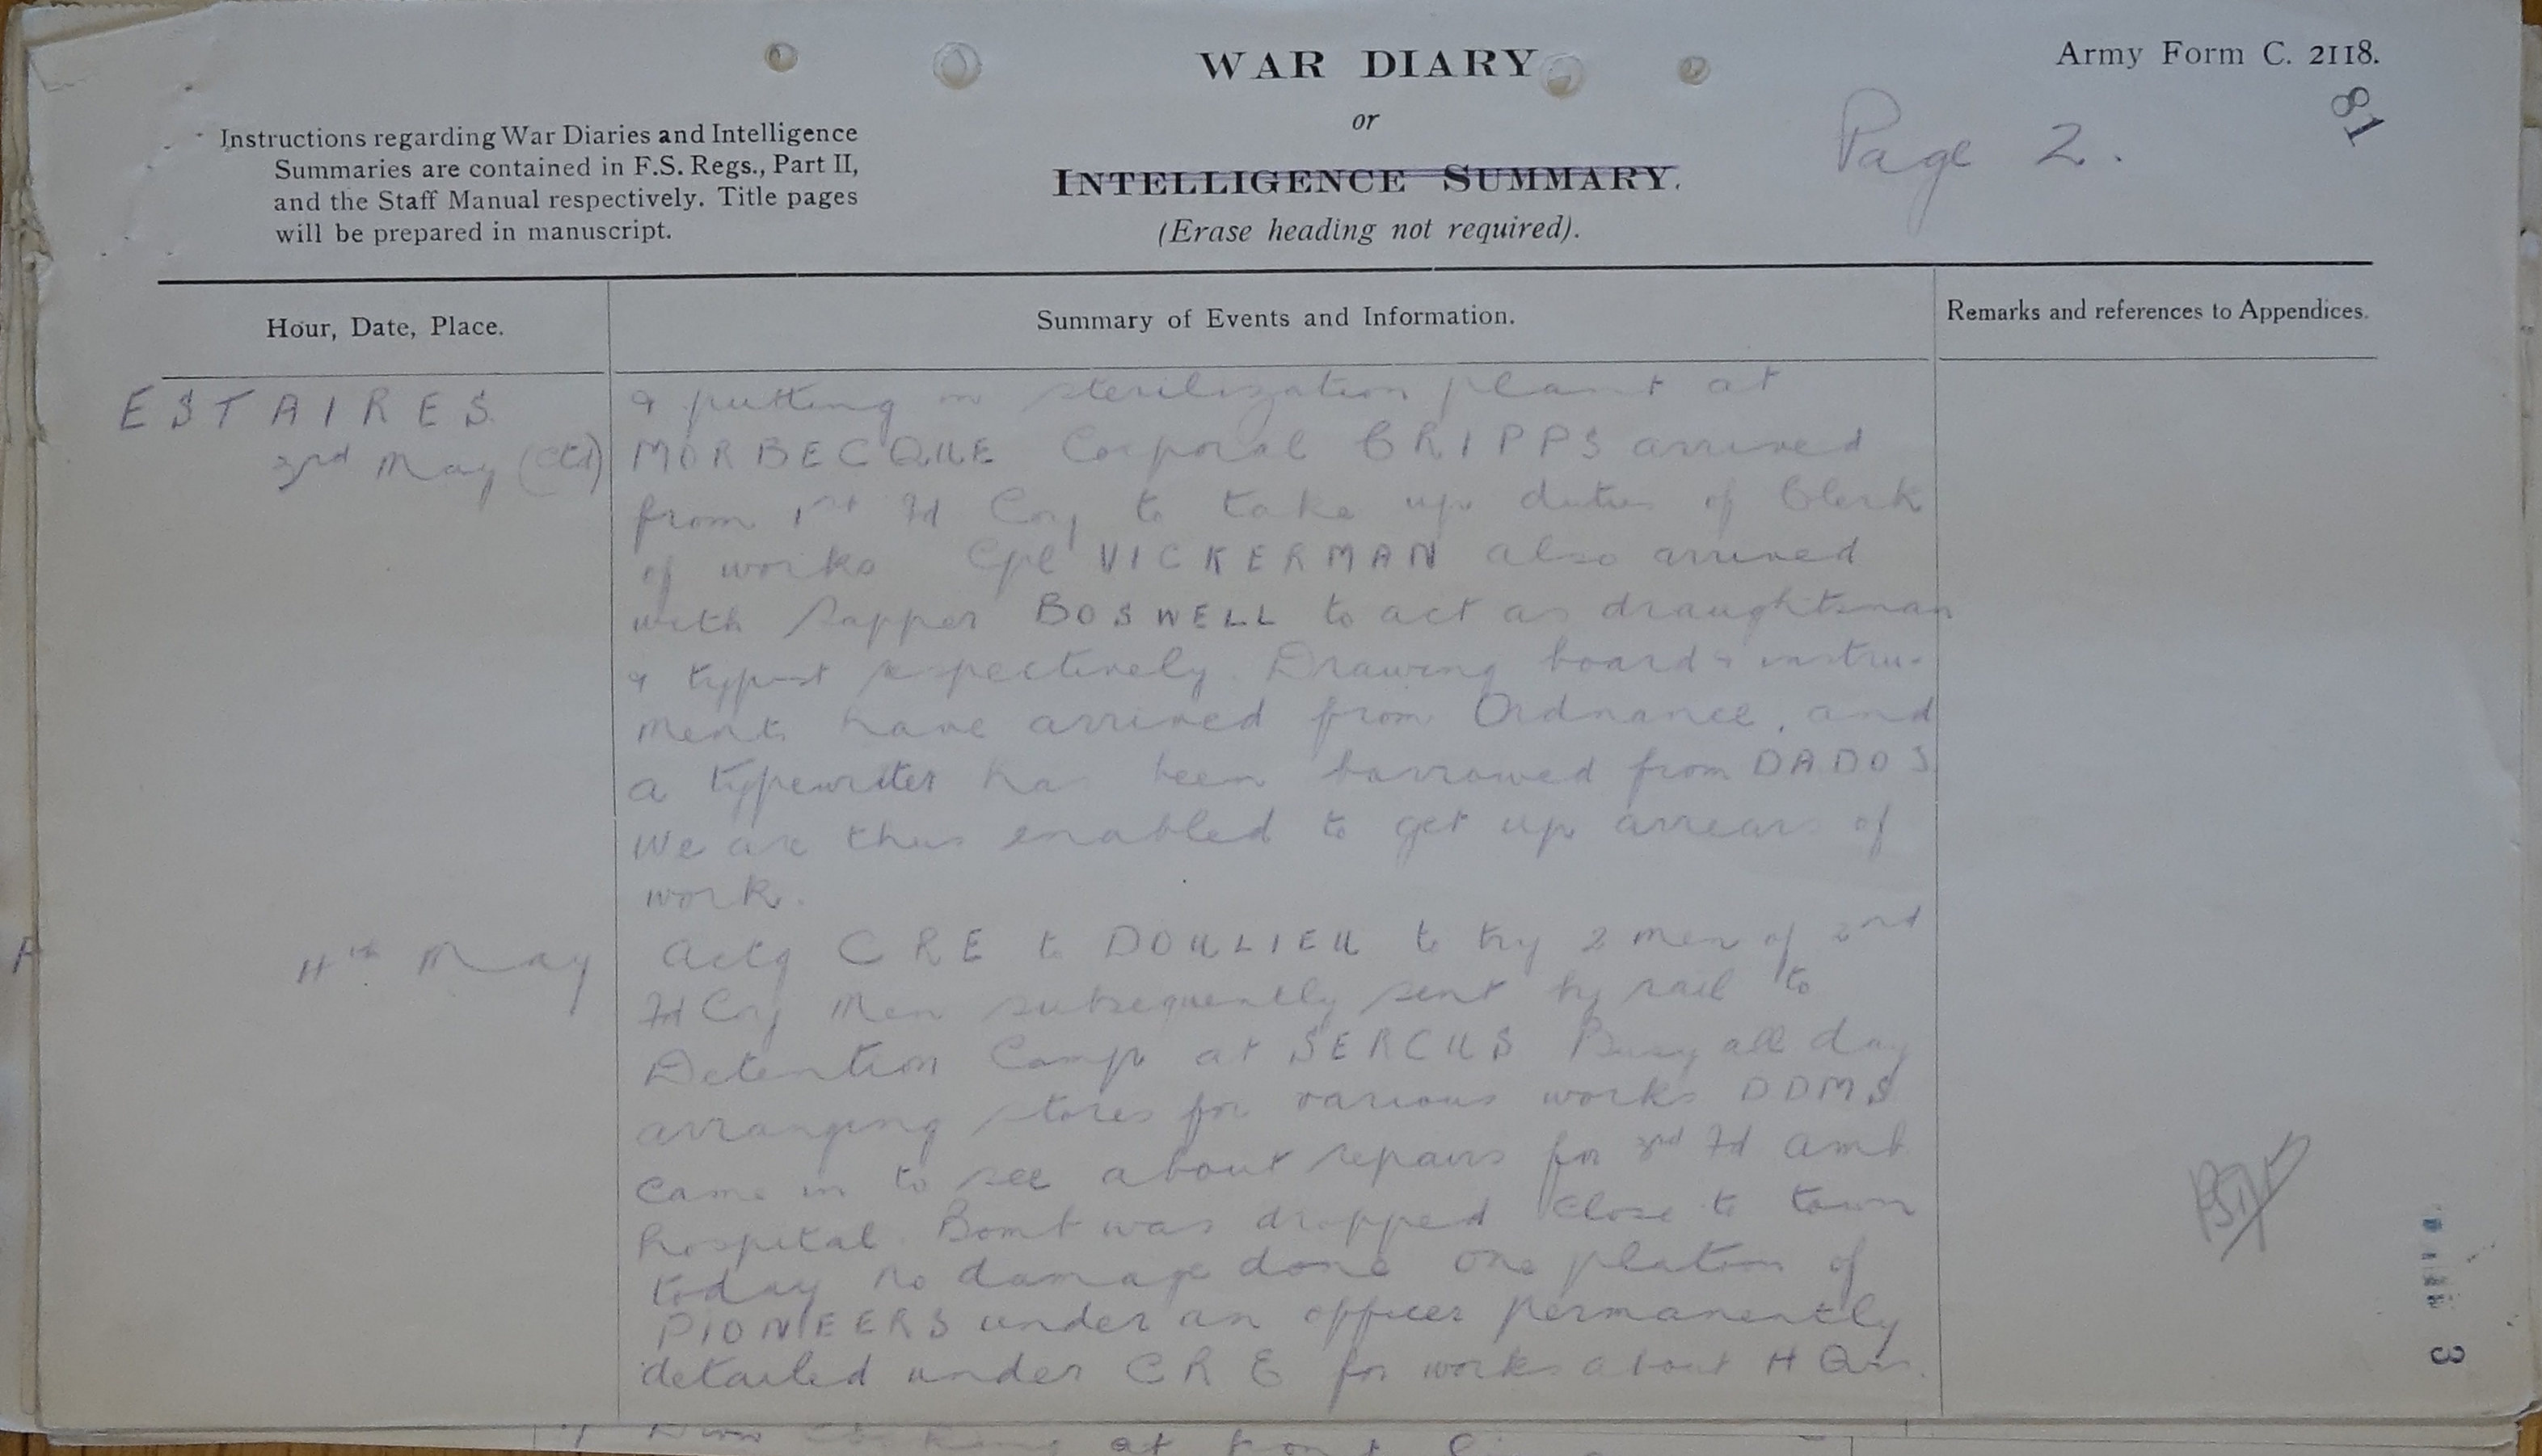 WAR DIARY
or
INTELLIGENCE SUMMARY.
(Erase heading not required).
Army Form C. 2118.
Page 2.
81
Instructions regarding War Diaries and Intelligence
Summaries are contained in F.S. Regs., Part II,
and the Staff Manual respectively. Title pages
will be prepared in manuscript.
Hour, Date, Place.
Summary of Events and Information.
Remarks and references to Appendices.
ESTAIRES
3rd May (Ctd)
& putting in sterilization plant at
MORBECQUE Corporal CRIPPS arrived
from 1st Fd Coy to take up duties of Clerk
of works Cpl VICKERMAN also arrived
with Sapper BOSWELL to act as draughtsman
& typist respectively. Drawing board & instru-
ments have arrived from Ordnance, and
a typewriter has been borrowed from DADOS
We are thus enabled to get up arrears of
work.
4th May
Actg CRE to DOULIEU to try 2 men of 2nd
Fd Coy Men subsequently sent by rail to
Detention Camp at SERCUS Busy all day
arranging stores for various works DDMS
came in to see about repairs for 3rd Fd Amb
hospital. Bomb was dropped close to town
today no damage done one platoon of
PIONEERS under an officer permanently
detailed under CRE for works about H Qrs.
3
at front